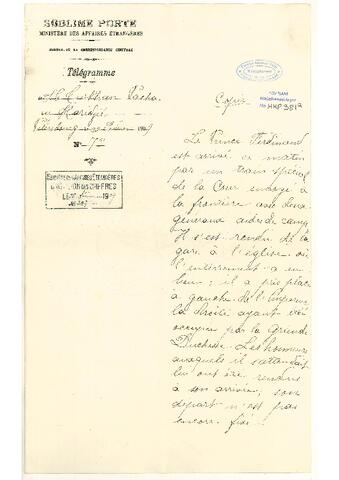 SUBLIME PORTE
MINISTÈRE DES AFFAIRES ÉTRANGÈRES
BUREAU DE LA CORRESPONDANCE CENTRALE
Télégramme
Turkhan Pacha
N°
Copie
Le Prince Ferdinand
est arrivé ce matin
par un train spécial
de la Cour envoyé à
la frontière avec deux
généraux aides de camp.
Il s'est rendu de la
gare à l'église où
l'enterrement a eu
lieu; il a pris place
à gauche de l'Empereur
la droite ayant été
occupée par la Grande
Duchesse. Les honneurs
auxquels il s'attendait
lui ont été rendus
à son arrivée; son
départ n'est pas
encore fixé.